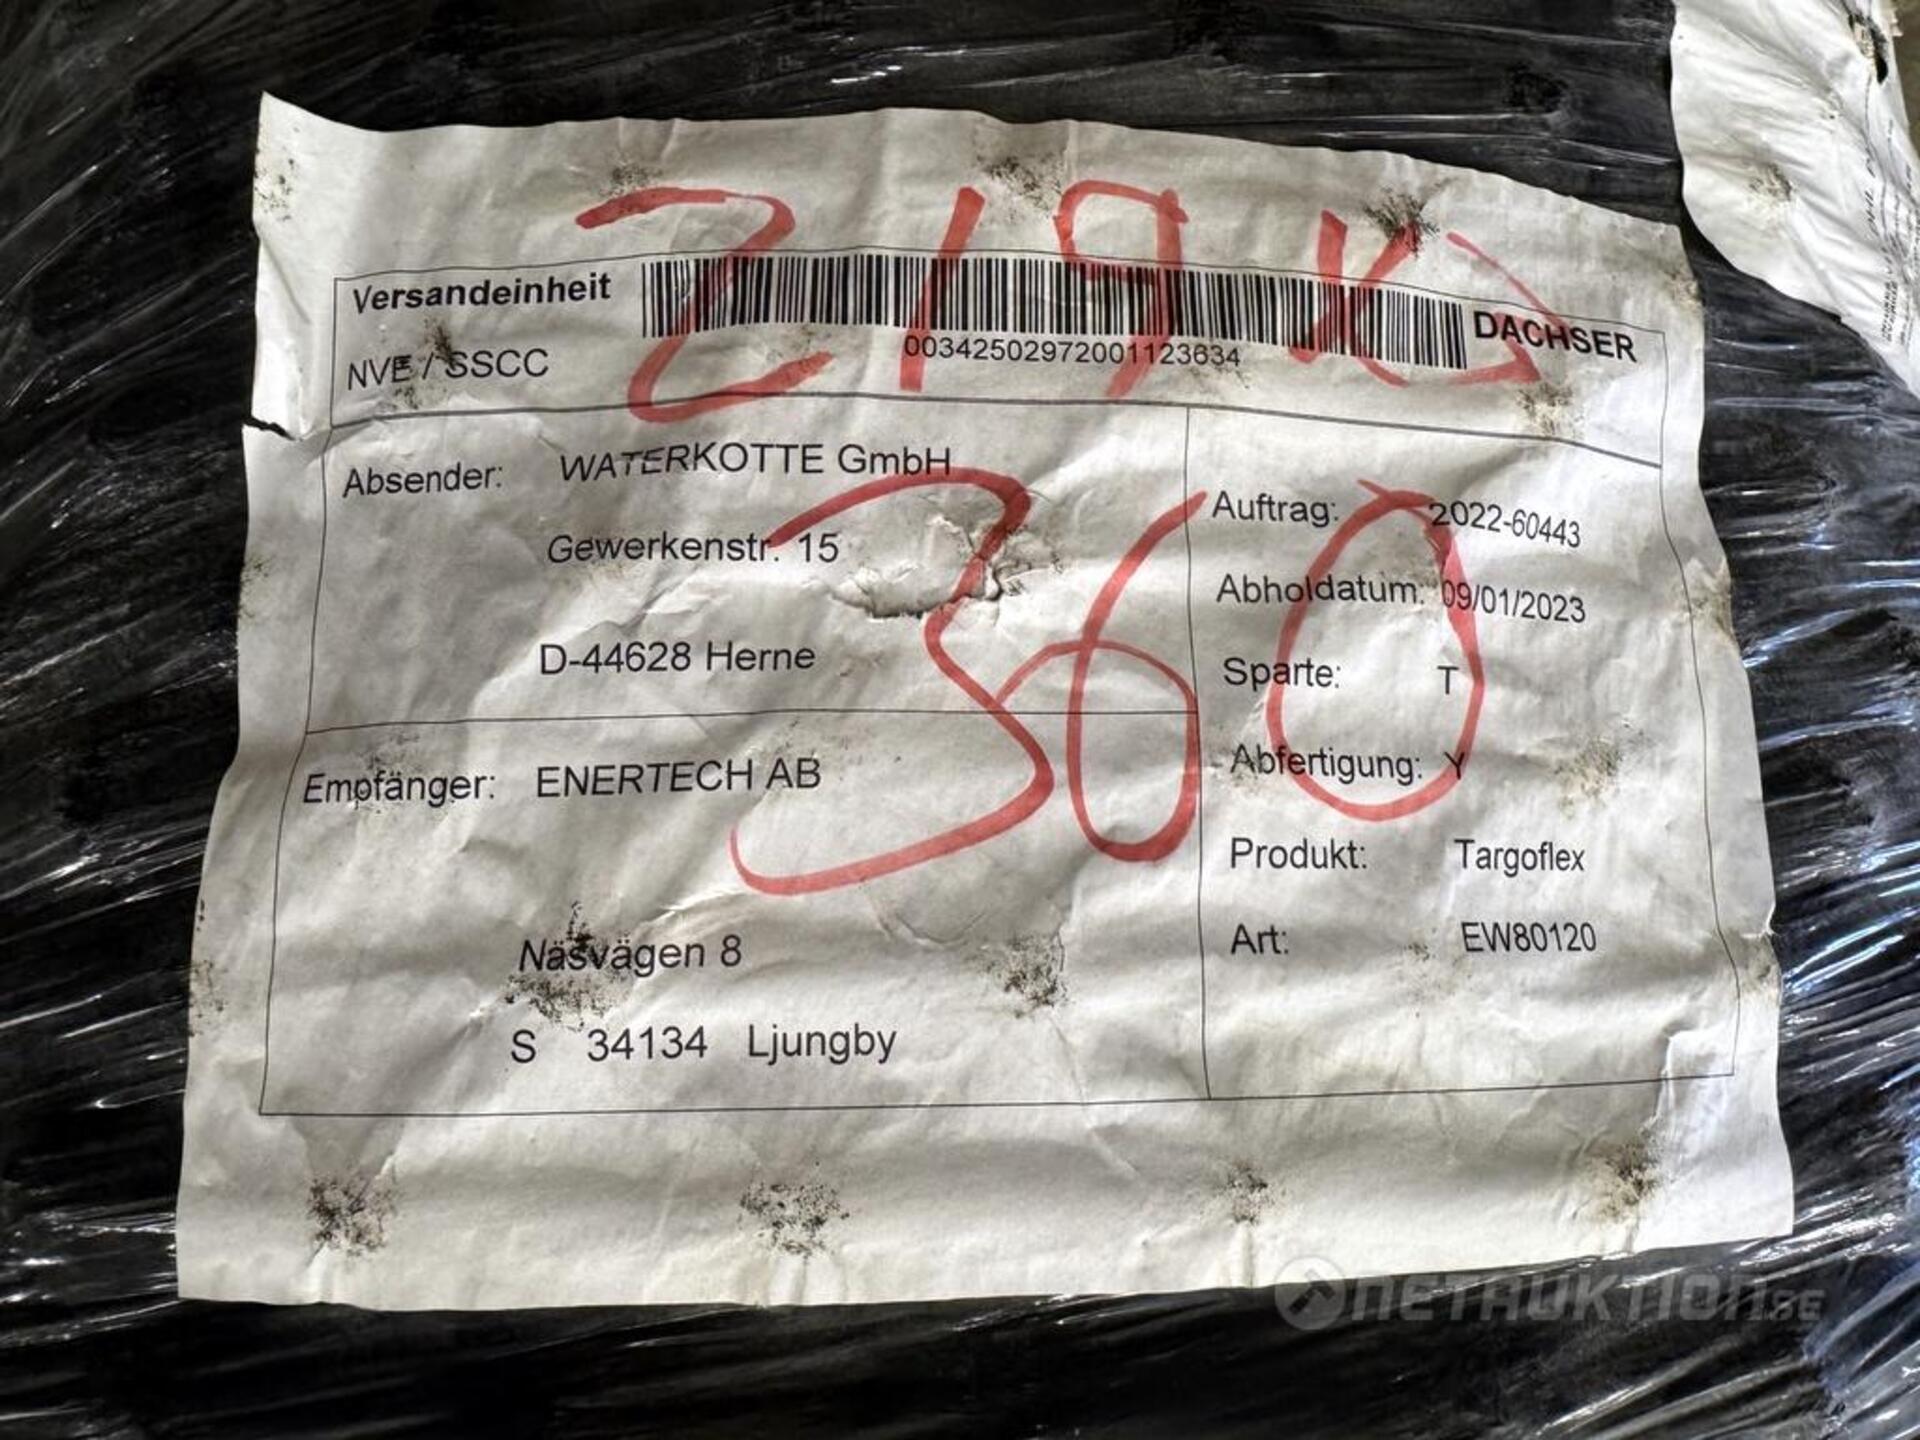 219 K
Versandeinheit
DACHSER
NVE / SSCC
00342502972001123634
Absender: WATERKOTTE GmbH
Gewerkenstr. 15
D-44628 Herne
360
Auftrag: 2022-60443
Abholdatum: 09/01/2023
Sparte: T
Abfertigung: Y
Produkt: Targoflex
Art: EW80120
Empfänger: ENERTECH AB
Näsvägen 8
S 34134 Ljungby
netauktion.se